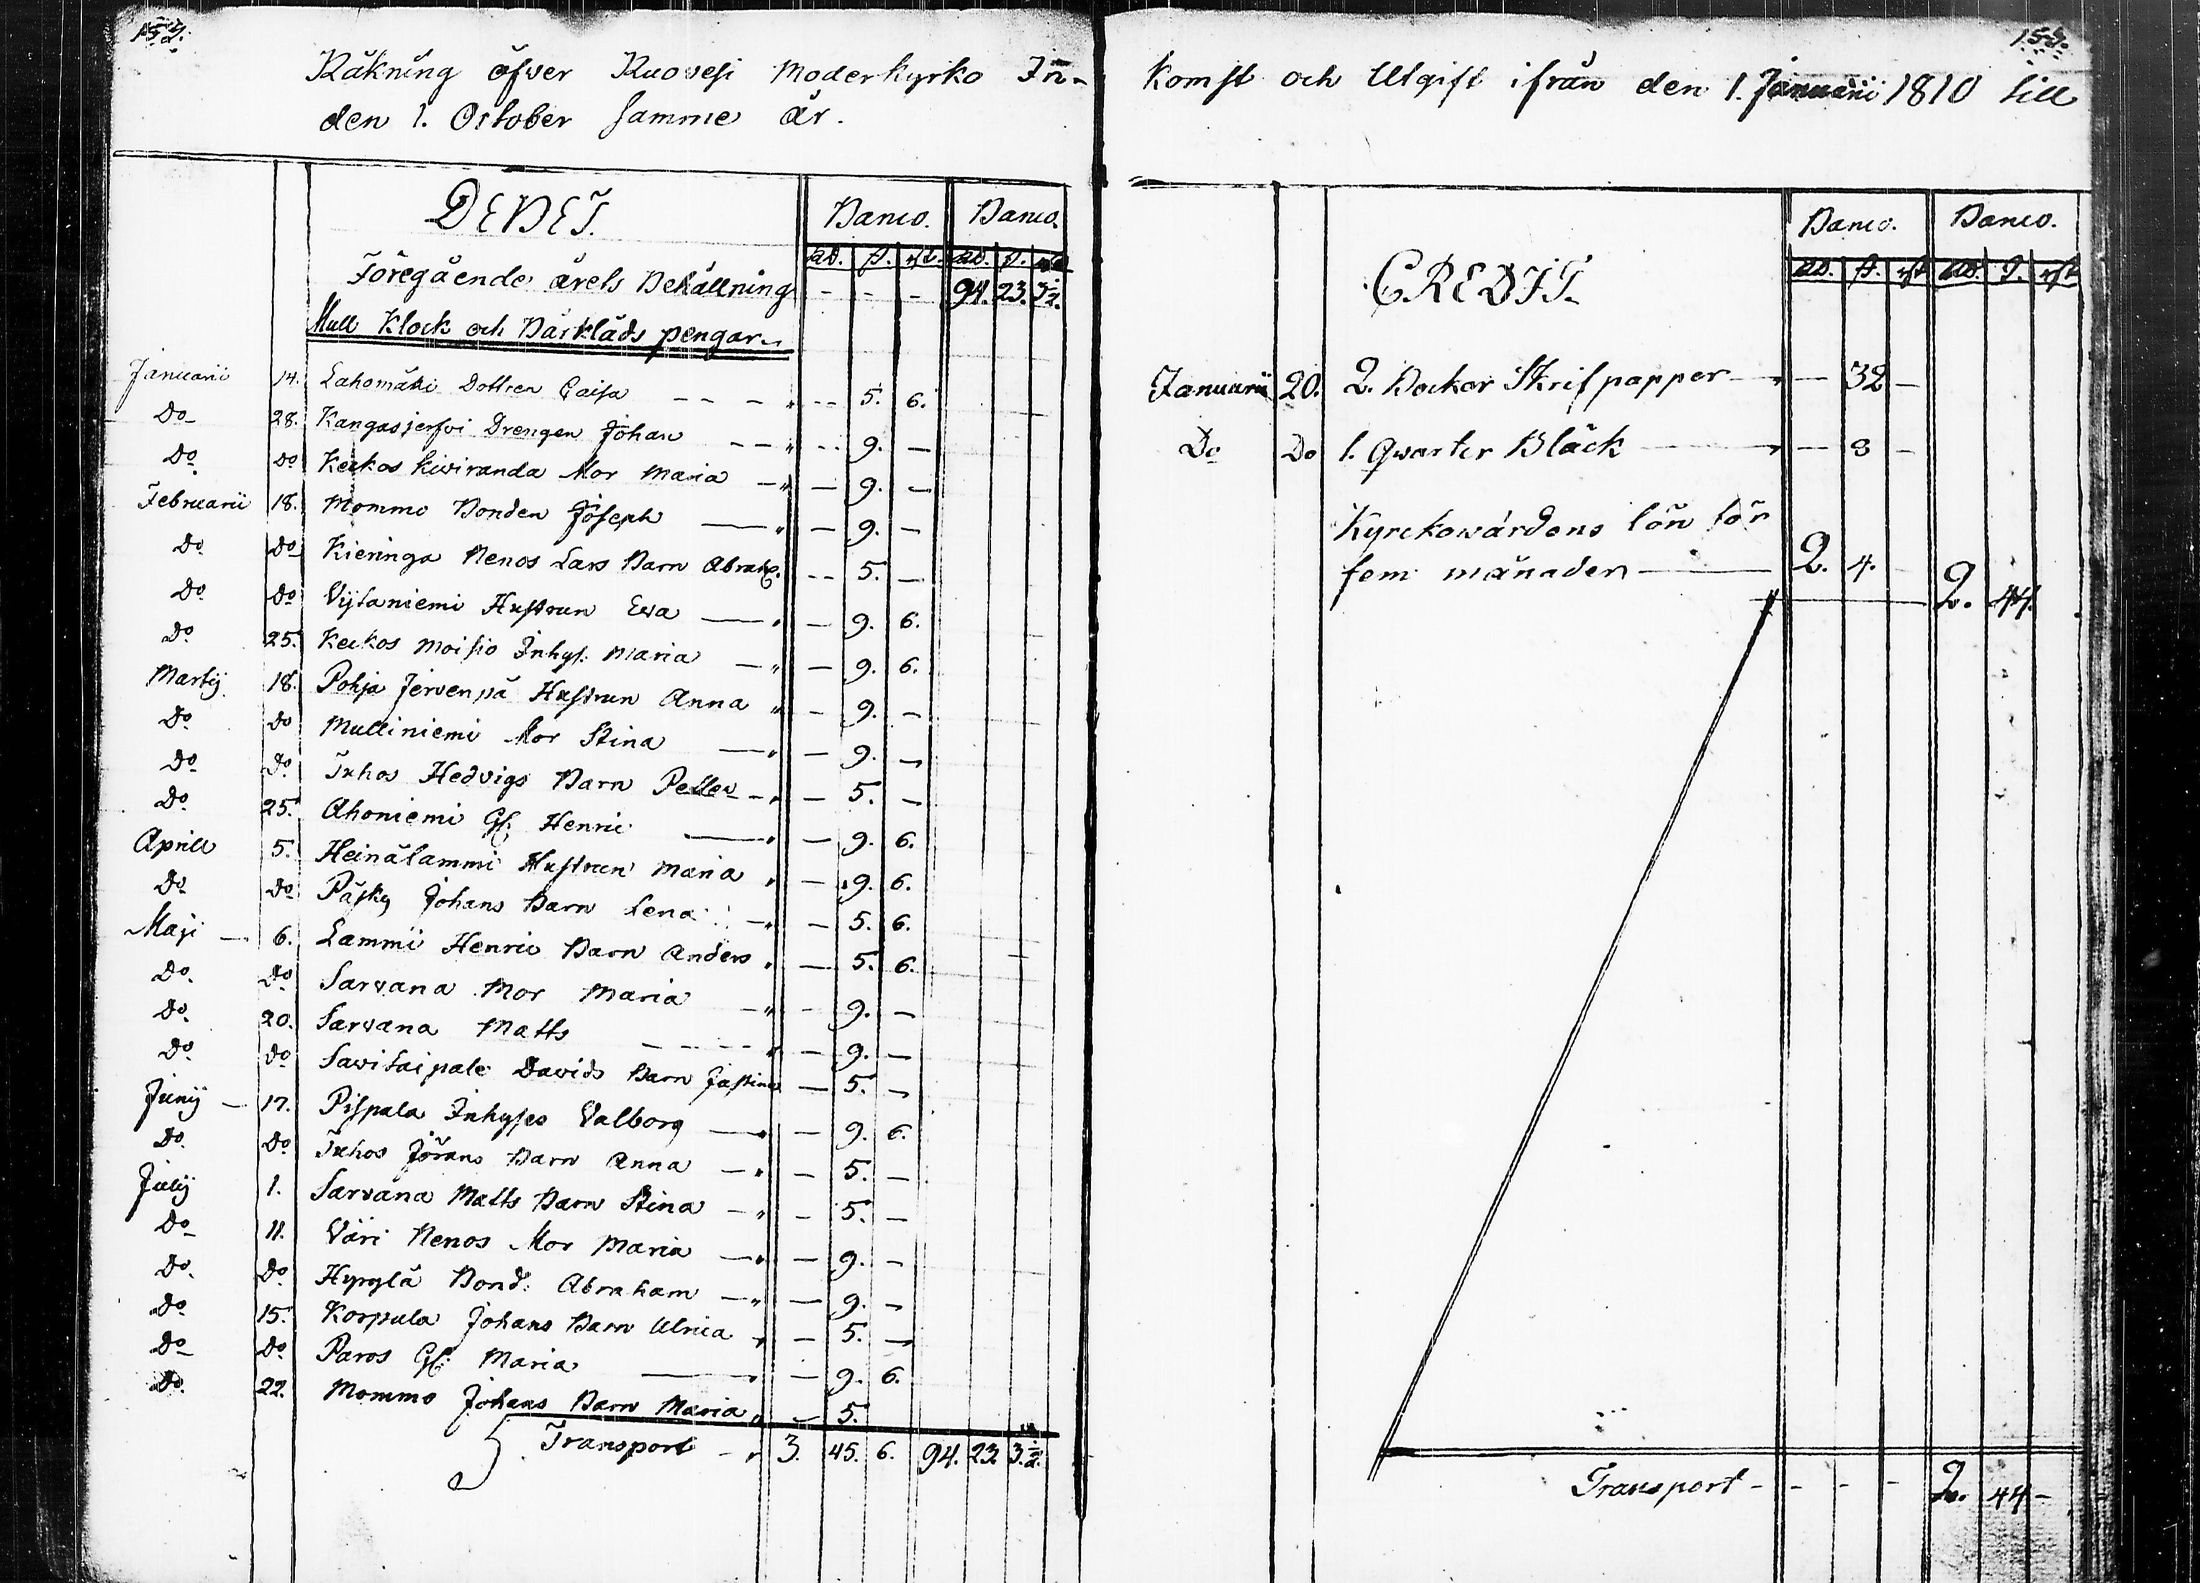 Räkning öfwer Ruovesi Moderkyrko In-
den 1. October samme år.
DEBET. Banco. Banco.
RD. ß. rst. RD. ß. rst.
Föregående årets Behållning - - - 94. 23. 3 1/2.
Mull Klock och Bårkläds pengar.
Januarii 14. Lahomäki Dottren Caisa - - - " -- 5. 6.
Do 28. Kangasjerfvi Drengen Johan - - " -- 9. —
Do Do Keckos kiviranda Mor Maria — " — 9. —
Februarii 18. Mommo Bonden Joseph — " — 9. —
Do Do Kieringa Nenos Lars Barn Abrah. -- 5. —
Do Do Vijtaniemi Hustrun Ewa — " — 9. 6.
Do 25. Keckos moisio Inhys. Maria — " — 9. 6.
Martij 18. Pohja Jervenpä Hustrun Anna " - 9. —
Do Do Mulliniemi Mor Stina — " — 9. —
Do Do Tuhos Hedvigs Barn Petter - " — 5. —
Do 25. Ahoniemi Gl: Henric — " — 9. 6.
Aprill 5. Heinälammi Hustrun Maria " — 9. 6.
Do Do Päsky Johans Barn Lena — " — 5. 6.
Maji — 6. Lammi Henric Barn Anders " — 5. 6.
Do Do Sarvana Mor Maria — " - 9. —
Do 20. Sarvana Matts - - - - " — 9. —
Do Do Savitaipale Davids Barn Justina — 5. —
Junij — 17. Pispala Inhyses Valborg — " — 9. 6.
Do Do Tuhos Jörans Barn Anna — " — 5. —
Julij 1. Sarvana Matts Barn Stina — " - 5. —
Do 11. Väri Nenos Mor Maria — " — 9. -
Do Do Hyrylä Bond: Abraham — " — 9. -
Do 15. Korpula Johans Barn Ulrica " — 5. —
Do Do Paros Gl: Maria — " — 9. 6.
Do 22. Mommo Johans Barn Maria " — 5.
Transport - " 3. 45. 6. 94. 23. 3 1/2.
komst och Utgift ifrån den 1. Januarii 1810 till
Banco. Banco.
RD. ß. rst RD. ß. rst
CREDIT.
Januarii 20. 2. Böcker Skrifpapper — " — 32 —
Do Do 1. Qwarter Bläck — " — 8 —
Kyrckowärdens lön för
fem månader — 2. 4. 2. 44.
Transport - - - - 2. 44 —